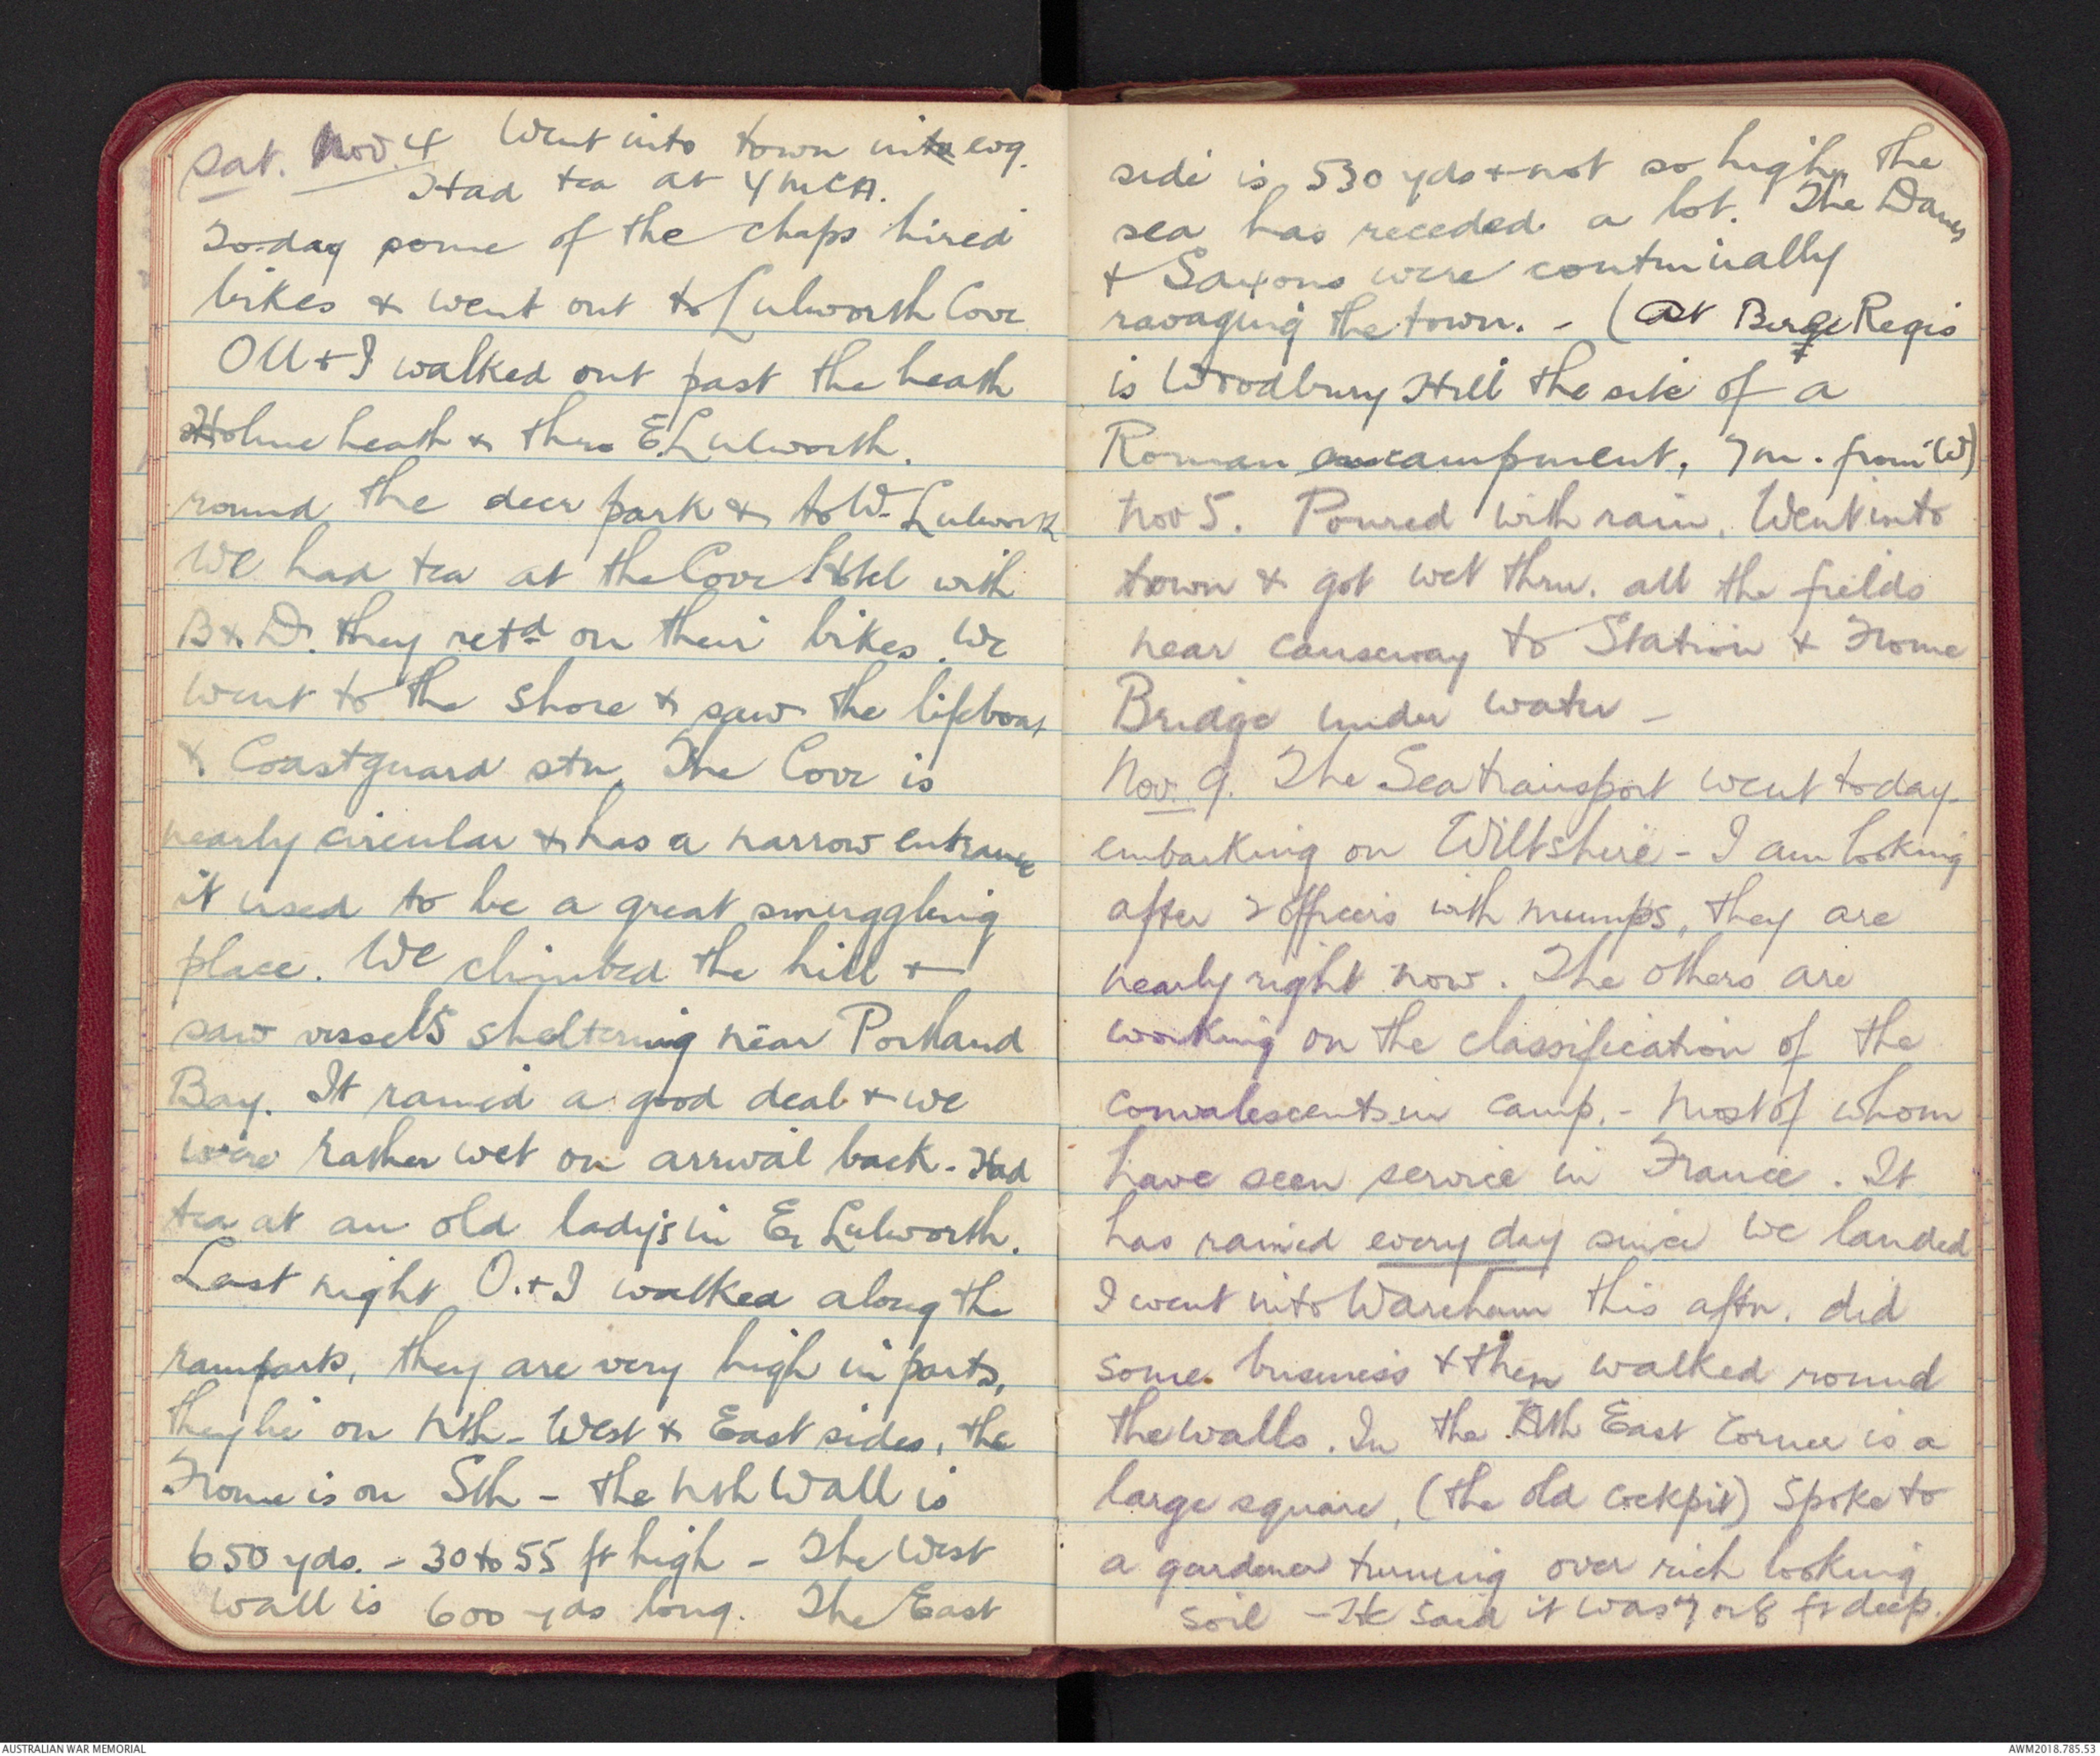 Sat. Nov. 4 Went into town in evg.
Had tea at YMCA.
To-day some of the chaps hired
bikes & went out to Lulworth Cove
O U & I walked out past the heath
Holme heath & thro E. Lulworth.
round the deer park & to W. Lulworth
We had tea at the Cove Hotel with
B & D. they retd on their bikes. We
went to the shore & saw the lifeboat
& Coastguard stn. The Cove is
nearly circular & has a narrow entrance
it used to be a great smuggling
place. We climbed the hill &
saw vessels sheltering near Portland
Bay. It rained a good deal & we
were rather wet on arrival back. Had
tea at an old lady's in E. Lulworth.
Last night O. & I walked along the
ramparts, they are very high in parts,
they lie on Nth - West & East sides, the
Frome is on Sth - the Nth Wall is
650 yds. - 30 to 55 ft high - The West
wall is 600 yds long. The East
side is 530 yds & not so high, the
sea has receded a lot. The Danes
& Saxons were continually
ravaging the town. - (At Bere Regis
is Woodbury Hill the site of a
Roman encampment, 7 m. from W)
Nov 5. Poured with rain. Went into
town & got wet thru. all the fields
near causeway to Station & Frome
Bridge under water -
Nov. 9. The Sea transport went today.
embarking on Wiltshire - I am looking
after 2 officers with mumps, they are
nearly right now. The others are
working on the classification of the
convalescents in camp. - Most of whom
have seen service in France. It
has rained every day since we landed
I went into Wareham this aftn. did
some business & then walked round
the walls. In the Nth East Corner is a
large square, (the old cockpit) Spoke to
a gardener turning over rich looking
soil - He said it was 7 or 8 ft deep.
AUSTRALIAN WAR MEMORIAL
AWM2018.785.53